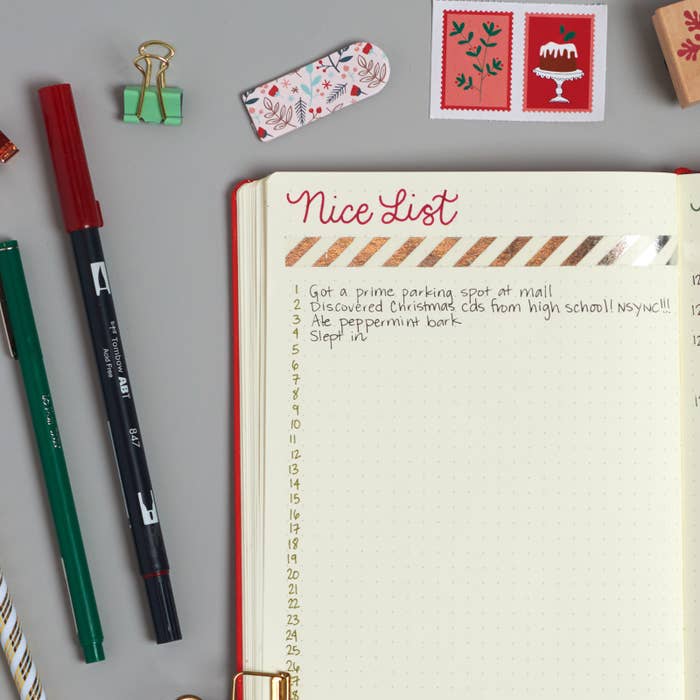 Nice List
1 Got a prime parking spot at mall
2 Discovered Christmas cds from high school! NSYNC!!!
3 Ate peppermint bark
4 Slept in
5
6
7
8
9
10
11
12
13
14
15
16
17
18
19
20
21
22
23
24
25
26
Tombow ABT
Acid Free
847